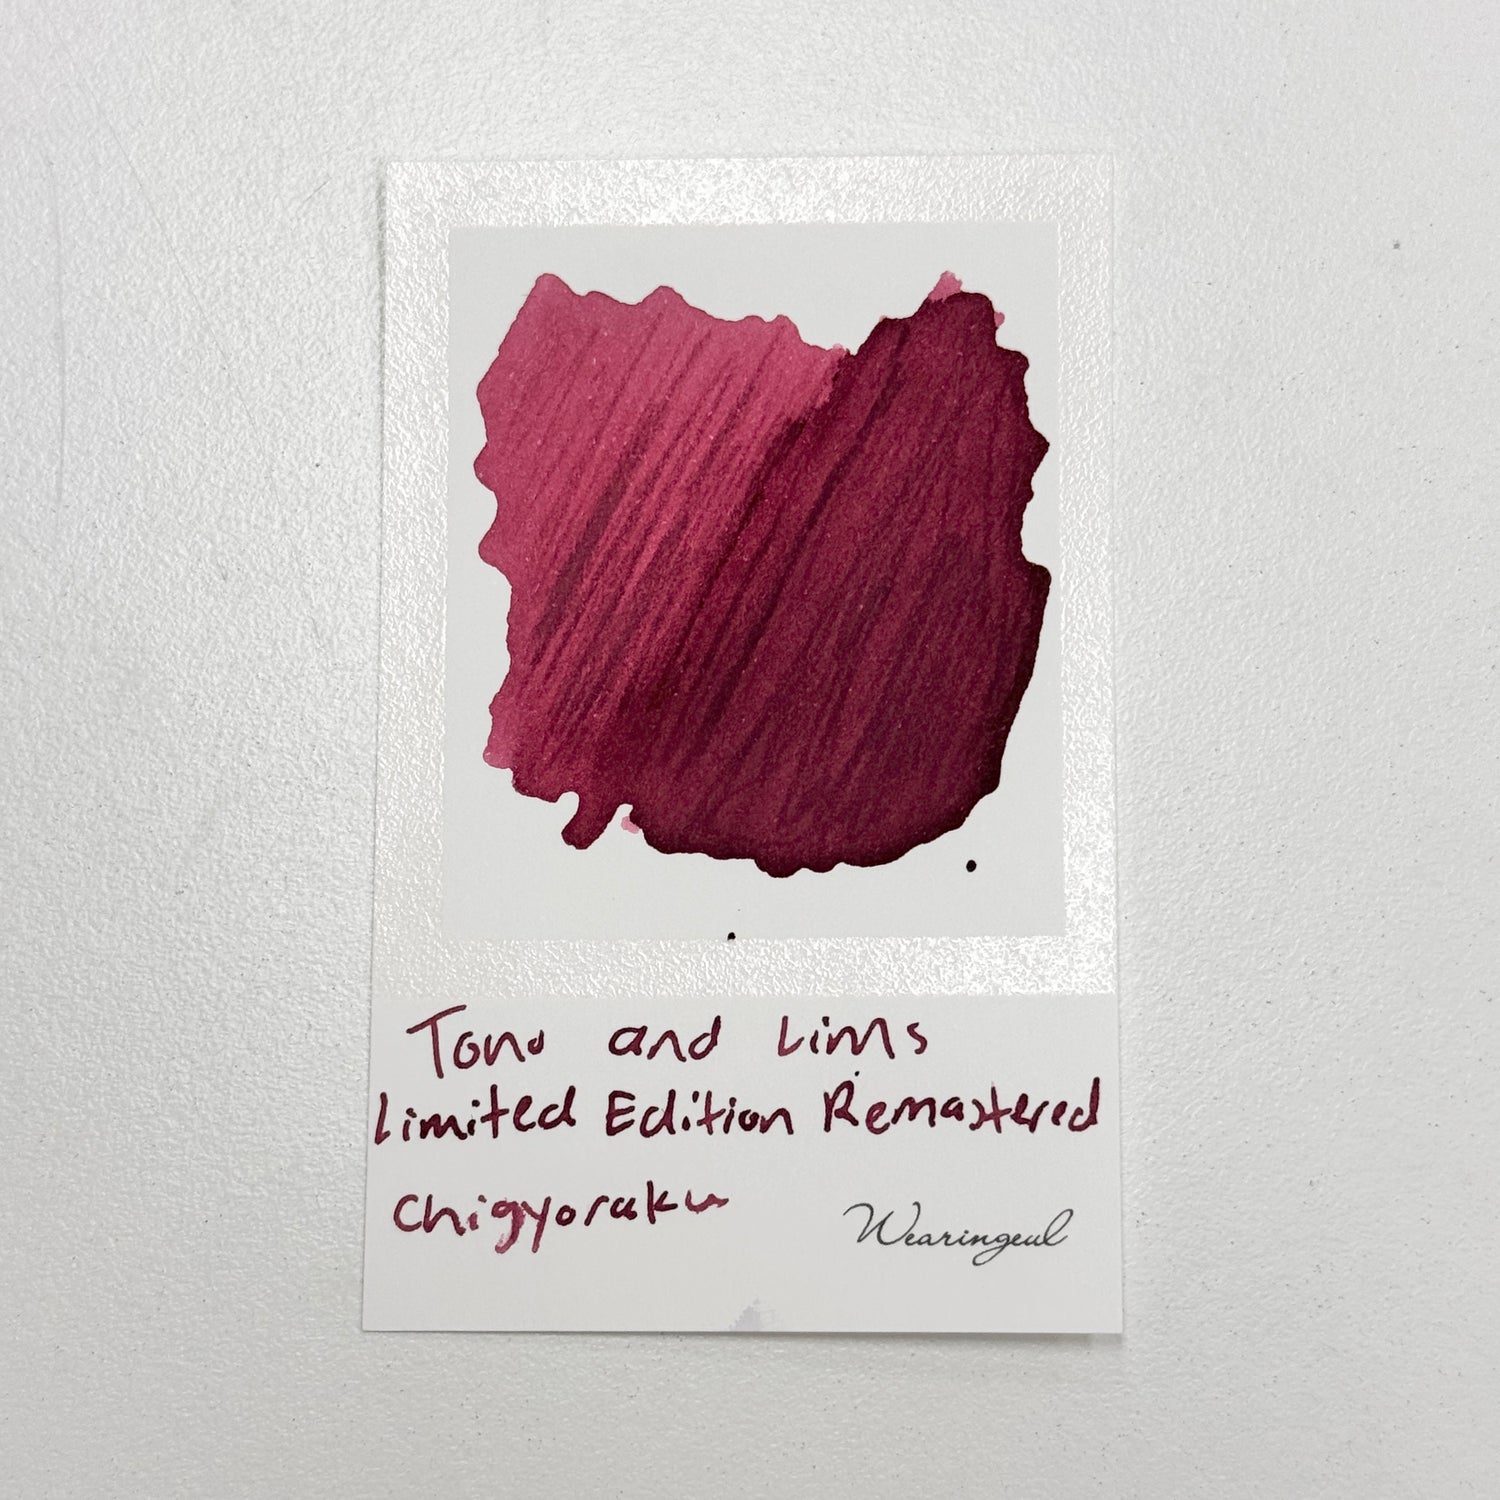 Tono and Lims
Limited Edition Remastered
Chigyoraku
Wearingeul